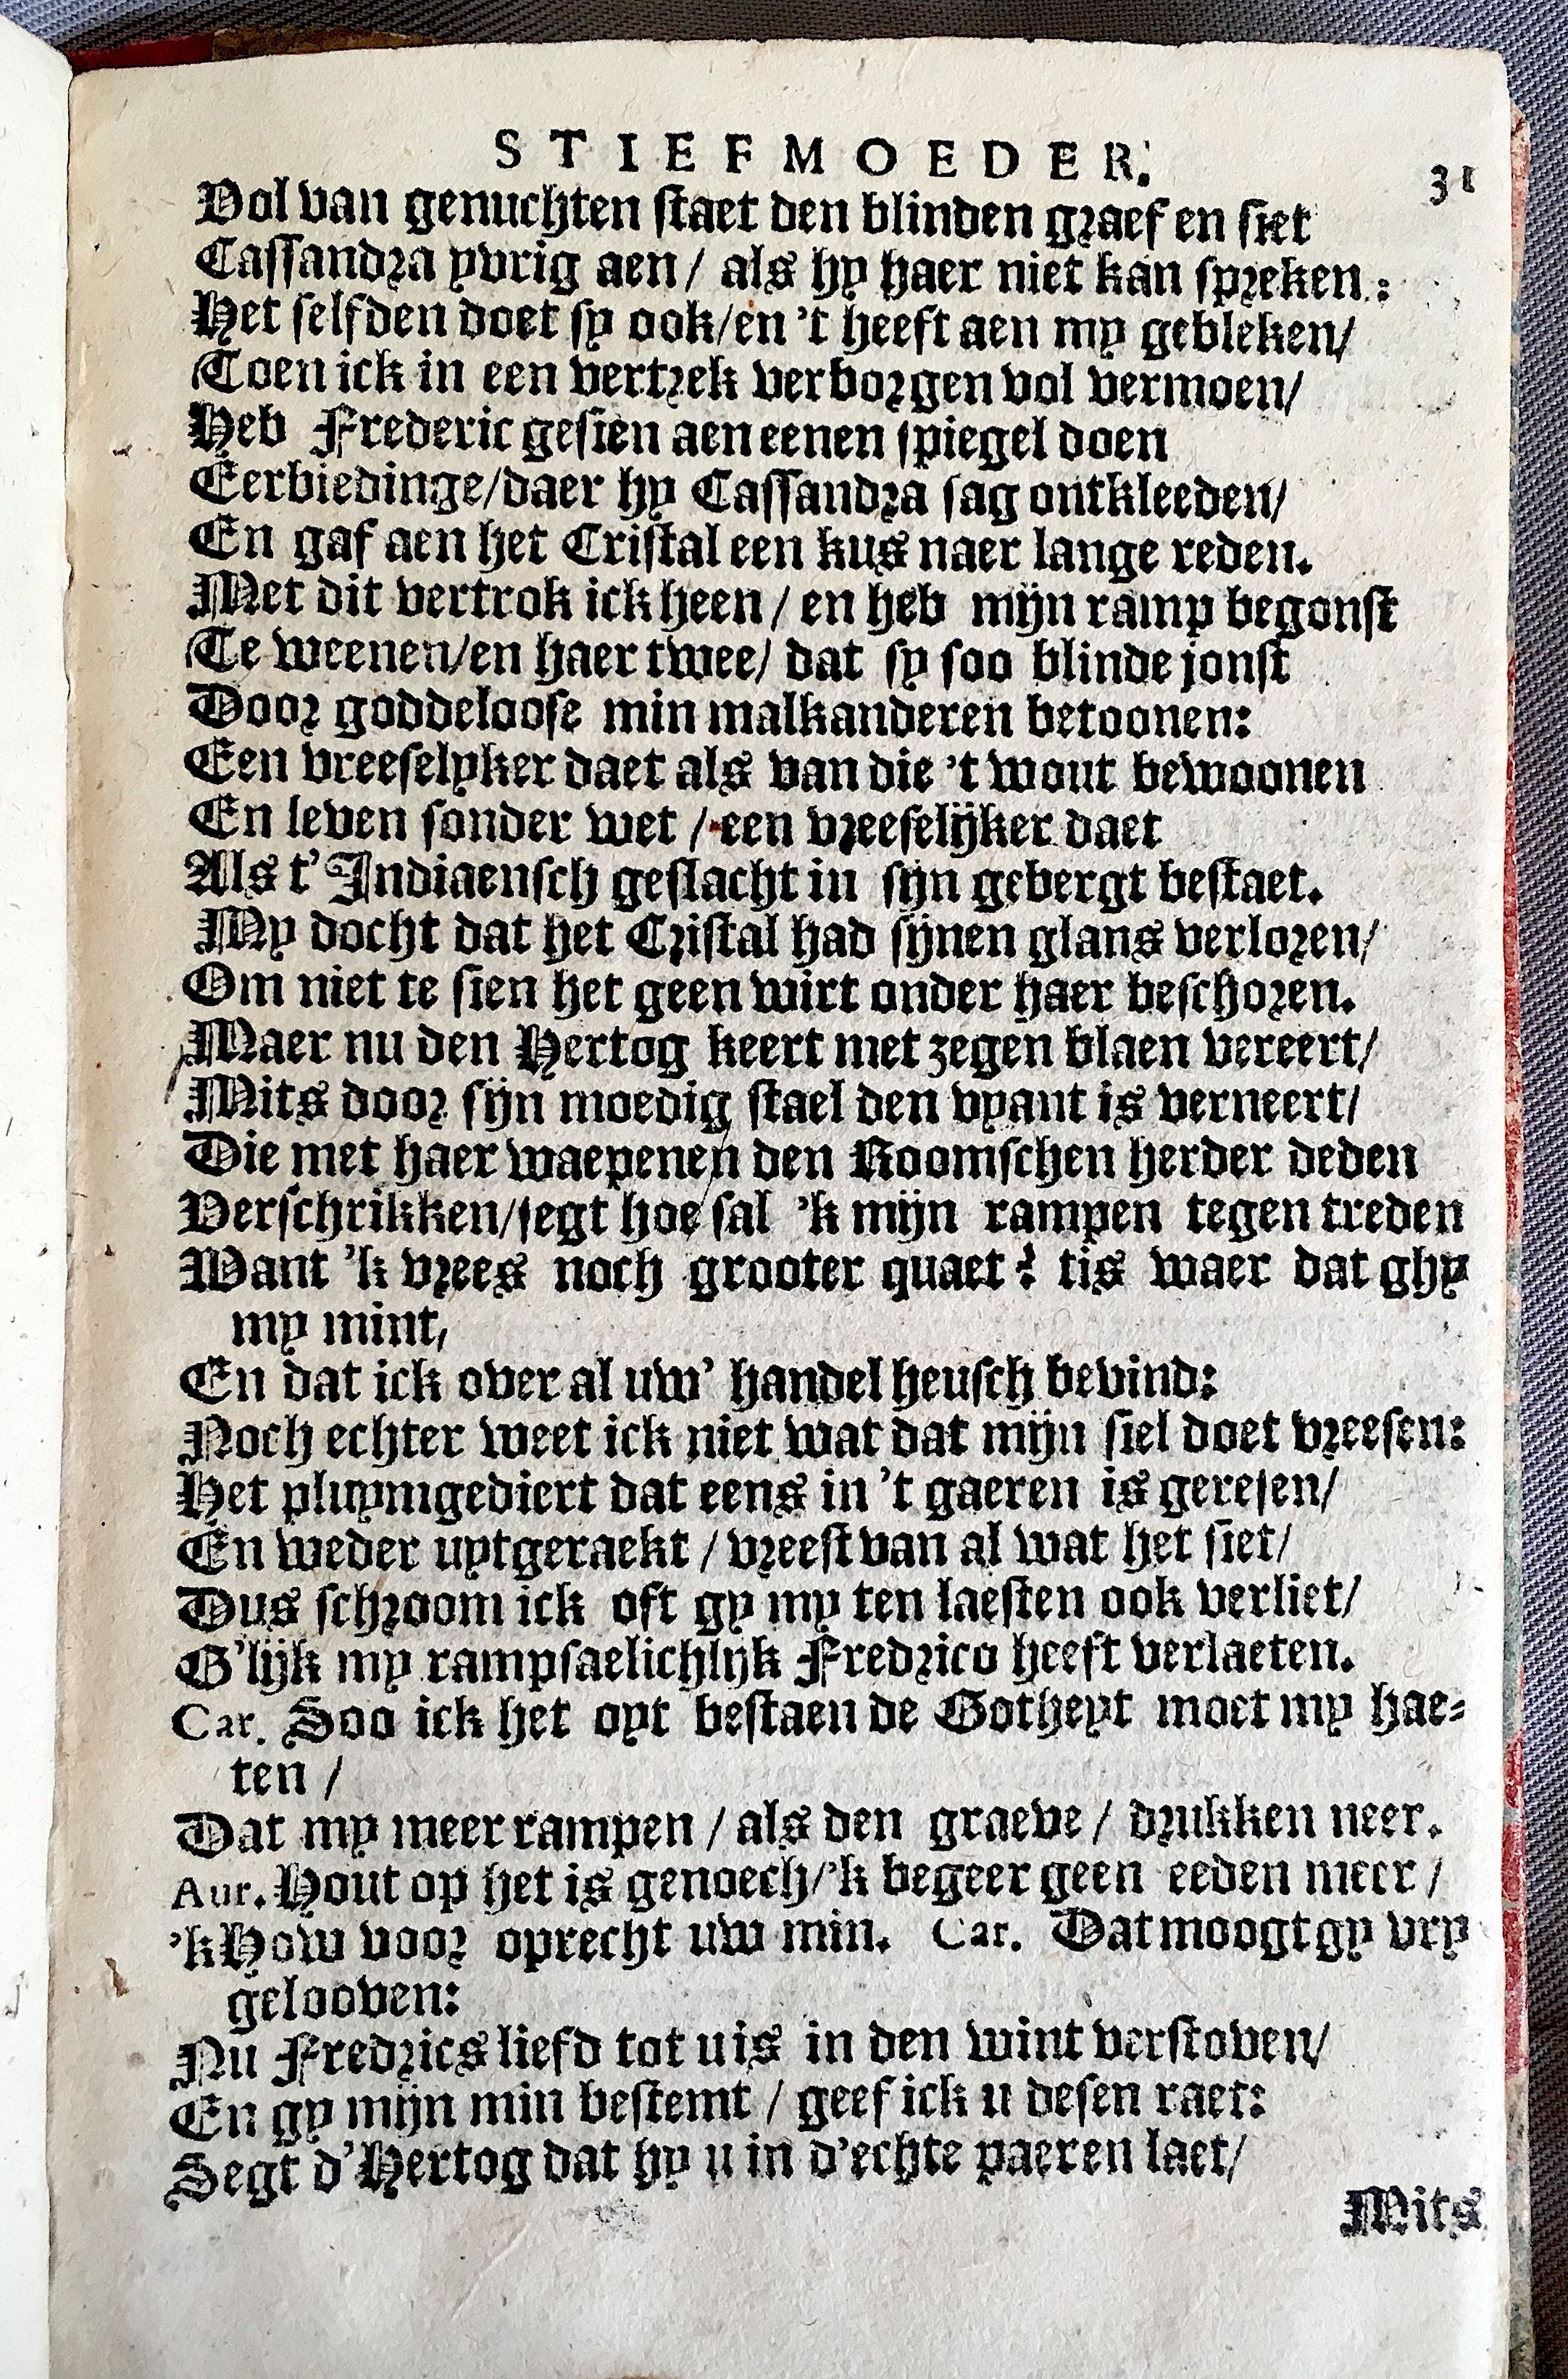 STIEFMOEDER.
31
Vol van genuchten staet den blinden graef en siet
Cassandra yvrig aen / als hy haer niet kan spreken:
Het selfden doet sy ook/en 't heeft aen my gebleken/
Toen ick in een vertrek verborgen vol vermoen/
Heb Frederic gesien aen eenen spiegel doen
Eerbiedinge/daer hy Cassandra sag ontkleeden/
En gaf aen het Cristal een kus naer lange reden.
Met dit vertrok ick heen / en heb mijn ramp begonst
Te weenen/en haer twee/ dat sy soo blinde jonst
Door goddeloose min malkanderen betoonen:
Een vreeselyker daet als van die 't wout bewoonen
En leven sonder wet / een vreeselijker daet
Als t'Indiaensch geslacht in sijn gebergt bestaet.
My docht dat het Cristal had sijnen glans verloren/
Om niet te sien het geen wirt onder haer beschoren.
Maer nu den Hertog keert met zegen blaen vereert/
Mits door sijn moedig stael den vyant is verneert/
Die met haer waepenen den Roomschen herder deden
Verschrikken/segt hoe sal 'k mijn rampen tegen treden
Want 'k vrees noch grooter quaet? tis waer dat ghy
my mint,
En dat ick over al uw' handel heusch bevind:
Noch echter weet ick niet wat dat mijn siel doet vreesen:
Het pluymgediert dat eens in 't gaeren is geresen/
En weder uytgeraekt / vreest van al wat het siet/
Dus schroom ick oft gy my ten laesten ook verliet/
G'lijk my rampsaelichlijk Fredrico heeft verlaeten.
Car. Soo ick het oyt bestaen de Gotheyt moet my hae-
ten /
Dat my meer rampen / als den graeve / drukken neer.
Aur. Hout op het is genoech/'k begeer geen eeden meer /
'k How voor oprecht uw min. Car. Dat moogt gy vry
gelooven:
Nu Fredrics liefd tot u is in den wint verstoven/
En gy mijn min bestemt / geef ick u desen raet:
Segt d'Hertog dat hy u in d'echte paeren laet/
Mits